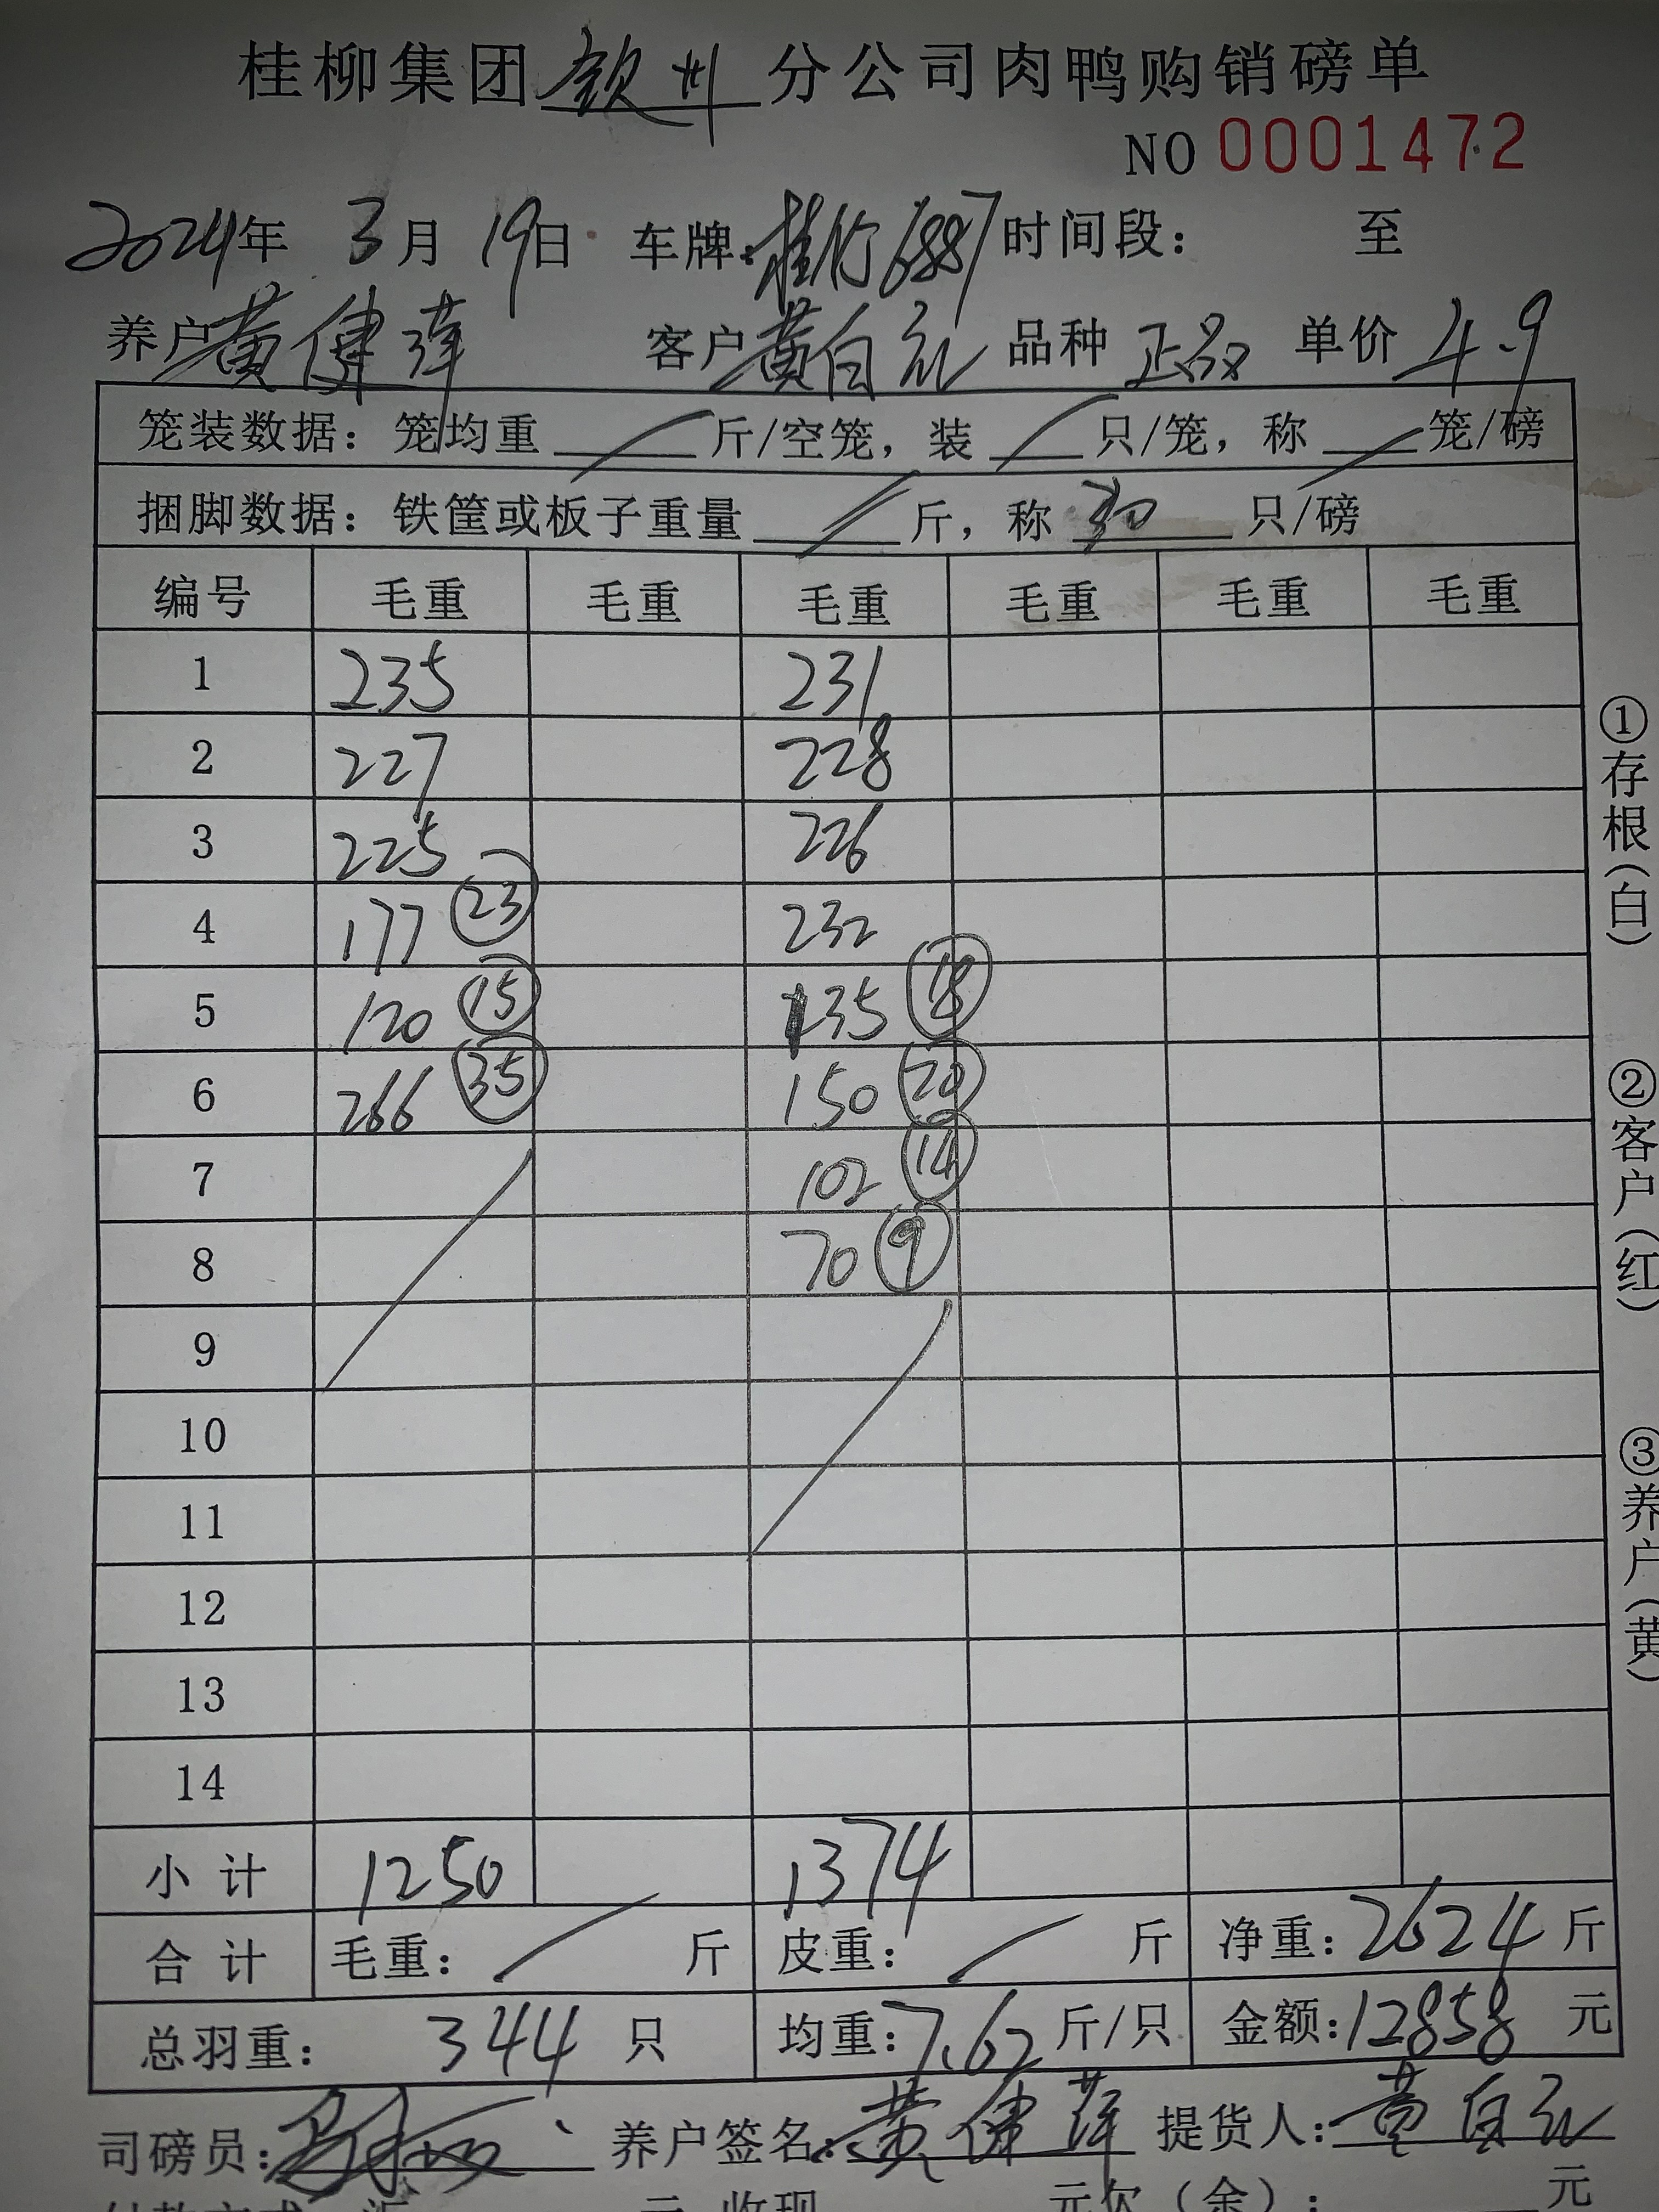 桂柳集团钦州分公司肉鸭购销磅单
NO 0001472
2024年 3月 19日 车牌:桂 6887 时间段: 至
养户黄健萍 客户黄自 品种 正品 单价 4.9
笼装数据: 笼均重 斤/空笼, 装 只/笼, 称 笼/磅
捆脚数据: 铁筐或板子重量 斤, 称 30 只/磅
编号 毛重 毛重 毛重 毛重 毛重 毛重
1 235 231
2 227 228
3 225 226
4 177 23 232
5 120 15 135 18
6 266 35 150 20
7 102 14
8 70 9
9
10
11
12
13
14
小计 1250 1374
合计 毛重: 斤 皮重: 斤 净重: 2624 斤
总羽重: 344 只 均重: 7.62 斤/只 金额: 12858 元
司磅员: 养户签名: 黄健萍 提货人: 黄自
元 收现 元欠(余): 元
①存根(白)
②客户(红)
③养户(黄)